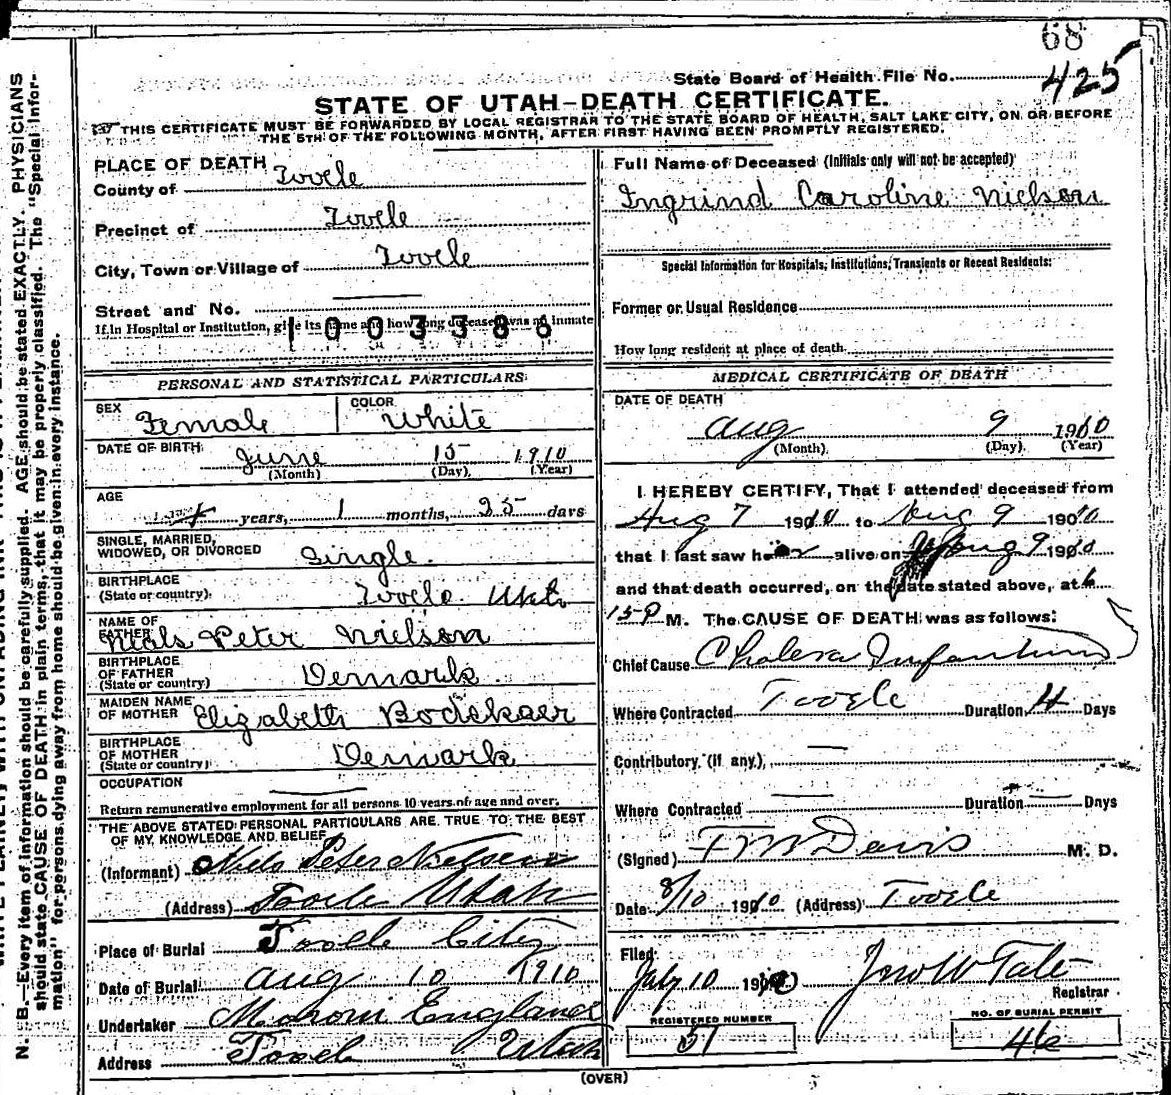 68
State Board of Health File No. 425
STATE OF UTAH–DEATH CERTIFICATE.
THIS CERTIFICATE MUST BE FORWARDED BY LOCAL REGISTRAR TO THE STATE BOARD OF HEALTH, SALT LAKE CITY, ON OR BEFORE
THE 5TH OF THE FOLLOWING MONTH, AFTER FIRST HAVING BEEN PROMPTLY REGISTERED.
PLACE OF DEATH
County of Tooele
Precinct of Tooele
City, Town or Village of Tooele
Street and No.
If in Hospital or Institution, give its name and how long deceased was an inmate
1003388
PERSONAL AND STATISTICAL PARTICULARS
SEX Female
COLOR White
DATE OF BIRTH June 15 1910
(Month) (Day) (Year)
AGE years, 1 months, 25 days
SINGLE, MARRIED,
WIDOWED, OR DIVORCED Single.
BIRTHPLACE
(State or country) Tooele Utah
NAME OF
FATHER Niels Peter Nielson
BIRTHPLACE
OF FATHER
(State or country) Denmark
MAIDEN NAME
OF MOTHER Elizabeth Bodskaer
BIRTHPLACE
OF MOTHER
(State or country) Denmark
OCCUPATION
Return remunerative employment for all persons 10 years of age and over.
THE ABOVE STATED PERSONAL PARTICULARS ARE TRUE TO THE BEST
OF MY KNOWLEDGE AND BELIEF
(Informant) Niels Peter Nielsen
(Address) Tooele Utah
Place of Burial Tooele City
Date of Burial Aug 10 1910
Undertaker Moroni England
Address Tooele Utah
Full Name of Deceased (Initials only will not be accepted)
Ingrind Caroline Nielson
Special Information for Hospitals, Institutions, Transients or Recent Residents:
Former or Usual Residence
How long resident at place of death
MEDICAL CERTIFICATE OF DEATH
DATE OF DEATH
Aug 9 1910
(Month) (Day) (Year)
I HEREBY CERTIFY, That I attended deceased from
Aug 7 1910 to Aug 9 1910
that I last saw her alive on Aug 9 1910
and that death occurred, on the date stated above, at 6
15 P M. The CAUSE OF DEATH was as follows:
Chief Cause Cholera Infantum
Where Contracted Tooele Duration 4 Days
Contributory (if any)
Where Contracted Duration Days
(Signed) Davis M. D.
Date 8/10 1910 (Address) Tooele
Filed
July 10 1910 Jno W Tate
Registrar
REGISTERED NUMBER
51
NO. OF BURIAL PERMIT
46
(OVER)
N. B.—Every item of information should be carefully supplied. AGE should be stated EXACTLY. PHYSICIANS
should state CAUSE OF DEATH in plain terms, that it may be properly classified. The "Special Infor-
mation" for persons dying away from home should be given in every instance.